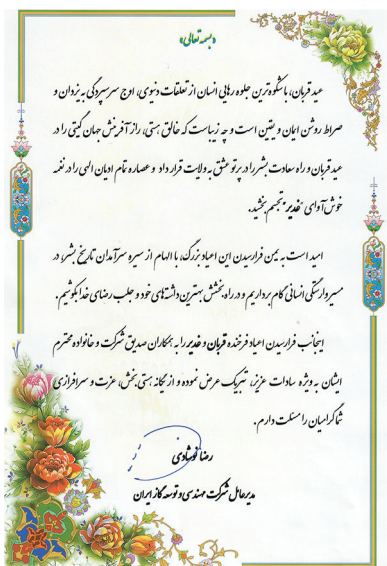 «بسمه تعالی»
عید قربان، باشکوه‌ترین جلوه رهایی انسان از تعلقات دنیوی، اوج سرسپردگی به یزدان و
صراط روشن ایمان و یقین است و چه زیباست که خالق هستی، راز آفرینش جهان گیتی را در
عید قربان و راه سعادت بشر را در پرتو عشق به ولایت قرار داد و عصاره تمام ادیان الهی را در نغمه
خوش‌آوای "غدیر" تجسم بخشید.
امید است به یمن فرارسیدن این اعیاد بزرگ، با الهام از سیره سرآمدان تاریخ بشر، در
مسیر وارستگی انسانی گام برداریم و در راه بخشش بهترین داشته‌های خود و جلب رضای خدا بکوشیم.
اینجانب فرارسیدن اعیاد فرخنده قربان و غدیر را به همکاران صدیق شرکت و خانواده محترم
ایشان به ویژه سادات عزیز، تبریک عرض نموده و از یگانه هستی بخش، عزت و سرافرازی
شما گرامیان را مسئلت دارم.
رضا نوشادی
مدیرعامل شرکت مهندسی و توسعه گاز ایران